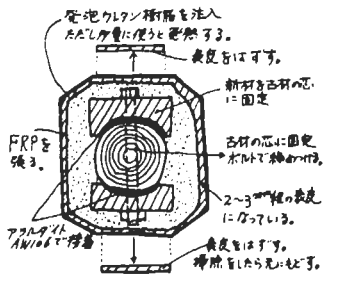 発泡ウレタン樹脂を注入
ただし少量に使うと発熱する。
表皮をはずす。
新材を古材の芯
に固定
FRPを
張る。
古材の芯に固定
ボルトで締めつける。
2〜3mm程の表皮
になっている。
アラルダイト
AW106で接着
表皮をはずす。
掃除をしたら元にもどす。